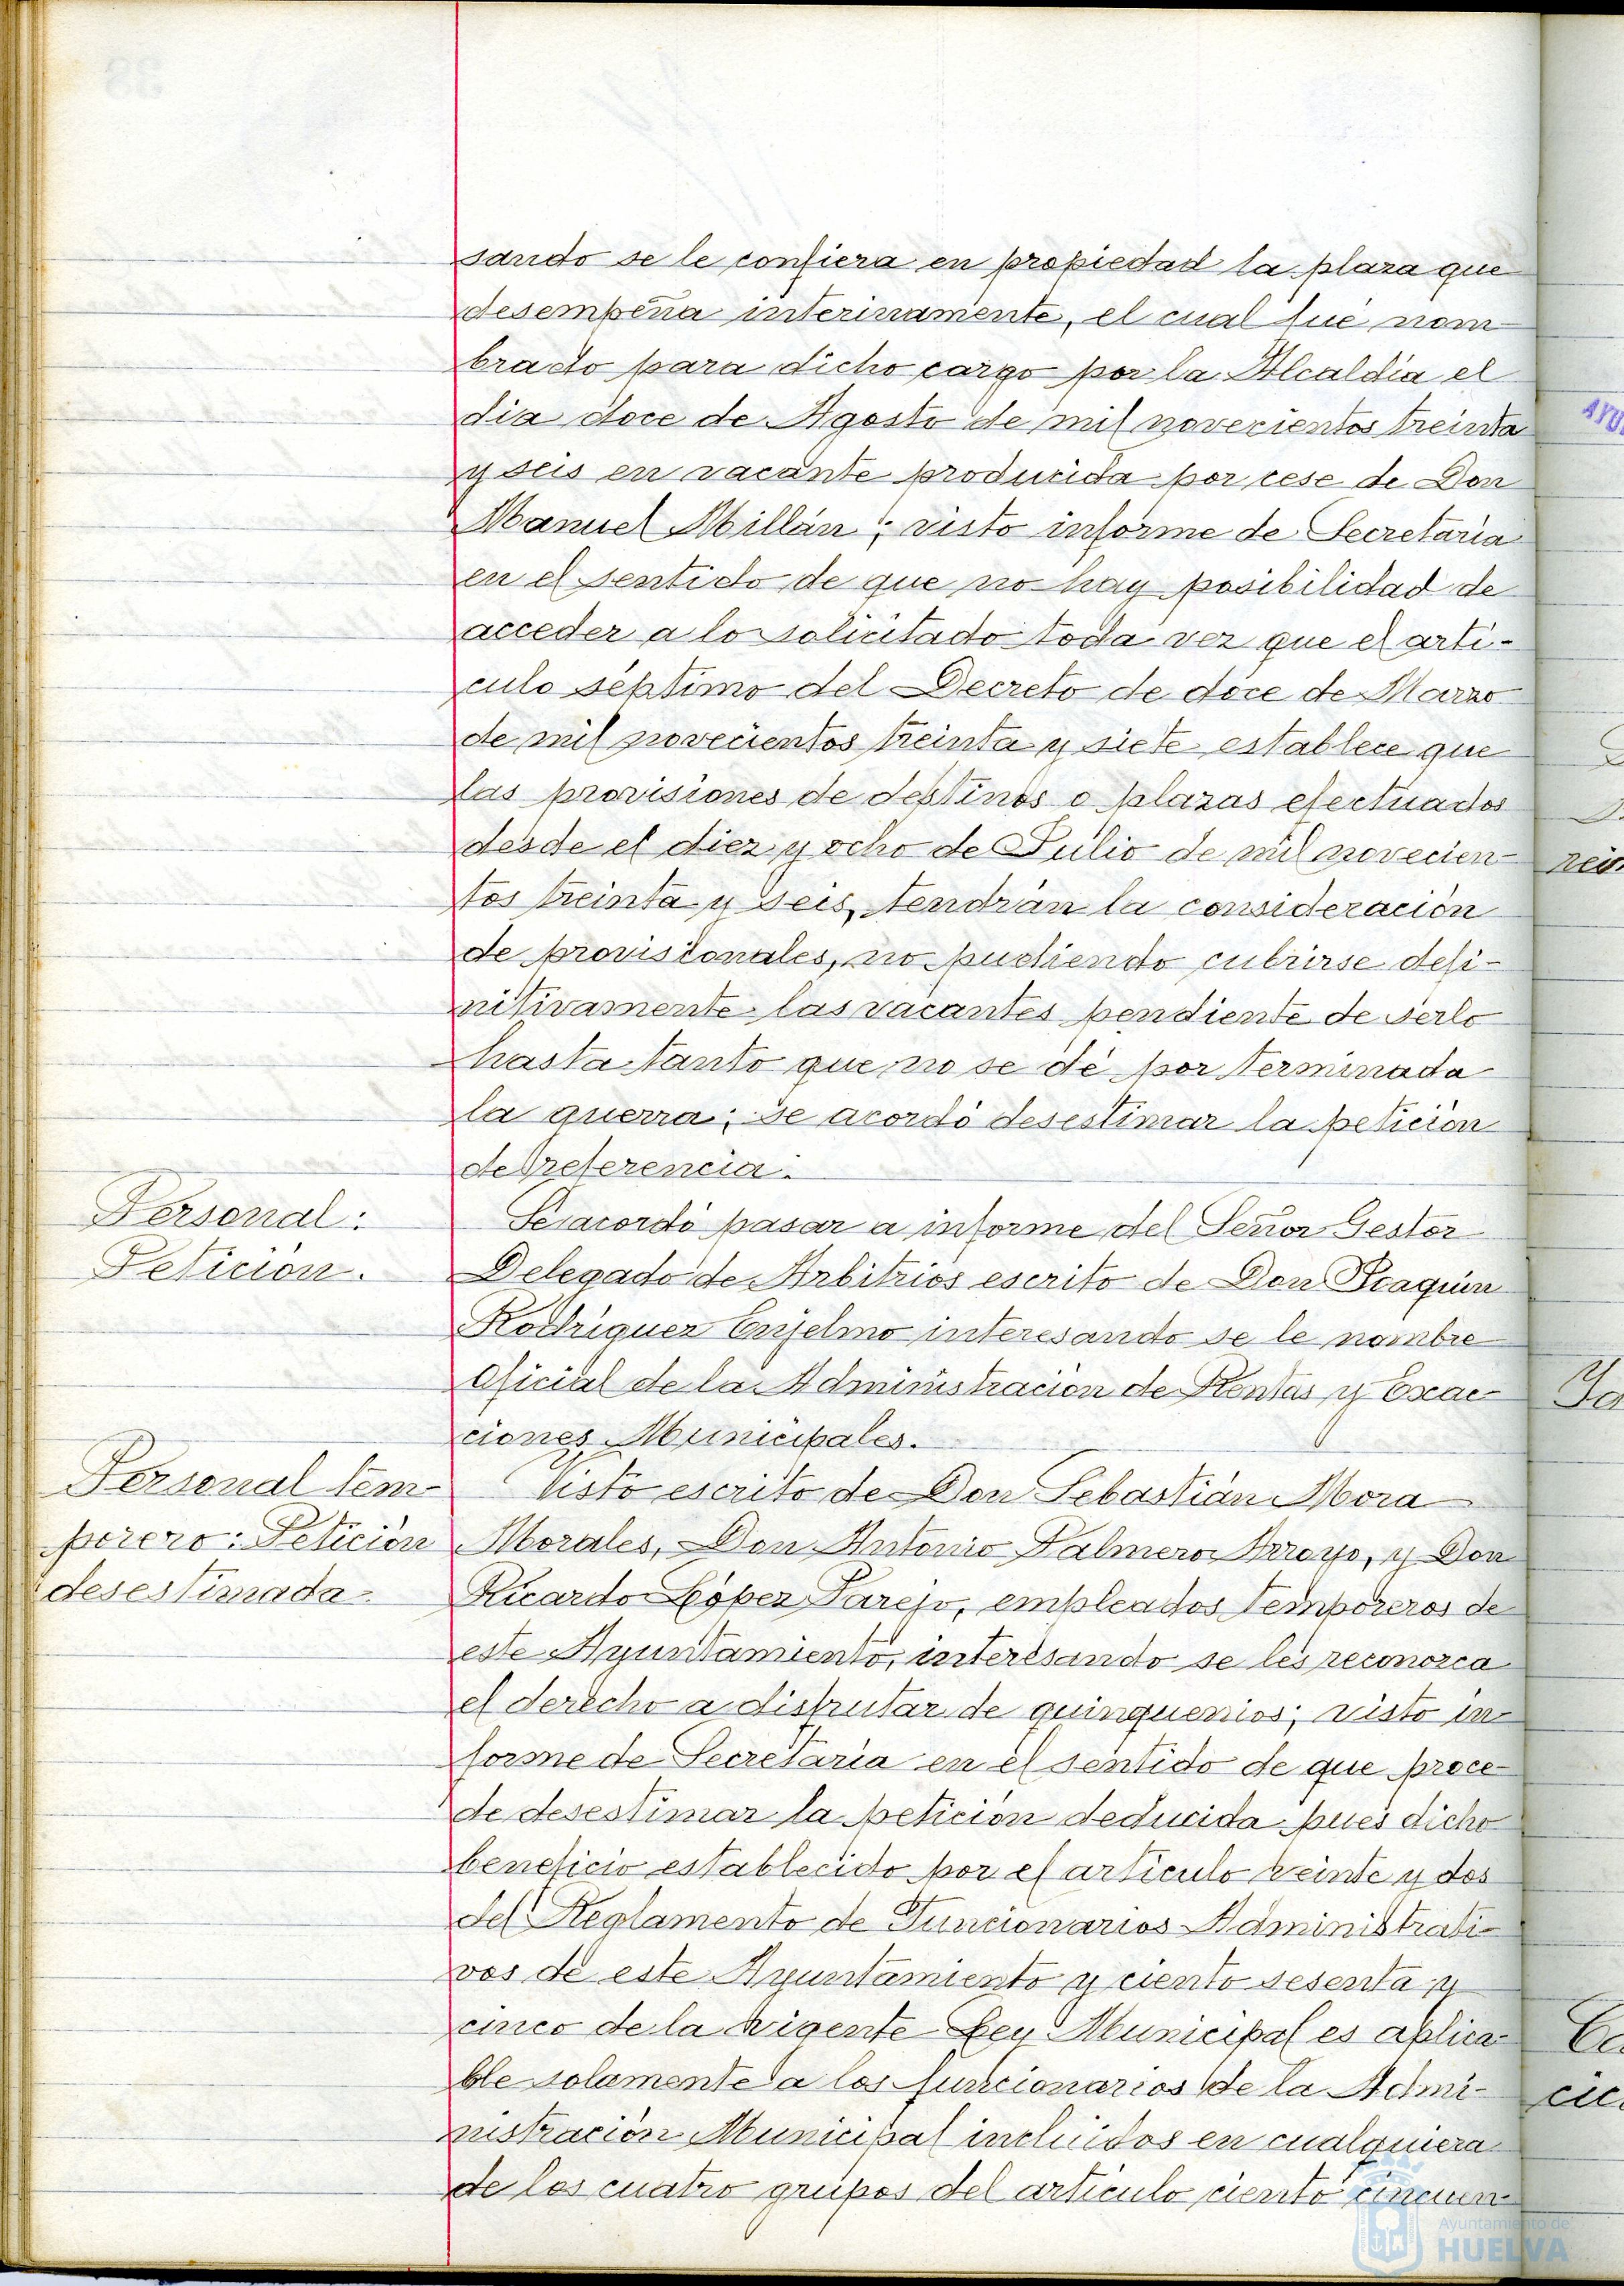 sando se le confiera en propiedad la plaza que
desempeña interinamente, el cual fué nom-
brado para dicho cargo por la Alcaldía el
dia doce de Agosto de mil novecientos treinta
y seis en vacante producida por cese de Don
Manuel Millán; visto informe de Secretaría
en el sentido de que no hay posibilidad de
acceder a lo solicitado toda vez que el arti-
culo séptimo del Decreto de doce de Marzo
de mil novecientos treinta y siete establece que
las provisiones de destinos o plazas efectuados
desde el diez y ocho de Julio de mil novecien-
tos treinta y seis, tendrán la consideración
de provisionales, no pudiendo cubrirse defi-
nitivamente las vacantes pendiente de serlo
hasta tanto que no se dé por terminada
la guerra; se acordó desestimar la petición
de referencia.
Personal:
Petición.
Se acordó pasar a informe del Señor Gestor
Delegado de Arbitrios escrito de Don Joaquín
Rodríguez Enjelmo interesando se le nombre
Oficial de la Administración de Rentas y Exac-
ciones Municipales.
Personal tem-
porero: Petición
desestimada.
Visto escrito de Don Sebastián Mora
Morales, Don Antonio Palmero Arroyo, y Don
Ricardo López Parejo, empleados temporeros de
este Ayuntamiento, interesando se les reconozca
el derecho a disfrutar de quinquenios; visto in-
forme de Secretaría en el sentido de que proce-
de desestimar la petición deducida pues dicho
beneficio establecido por el artículo veinte y dos
del Reglamento de Funcionarios Administrati-
vos de este Ayuntamiento y ciento sesenta y
cinco de la vigente Ley Municipal es aplica-
ble solamente a los funcionarios de la Admi-
nistración Municipal incluídos en cualquiera
de los cuatro grupos del artículo ciento cincuen-
Ayuntamiento de
HUELVA